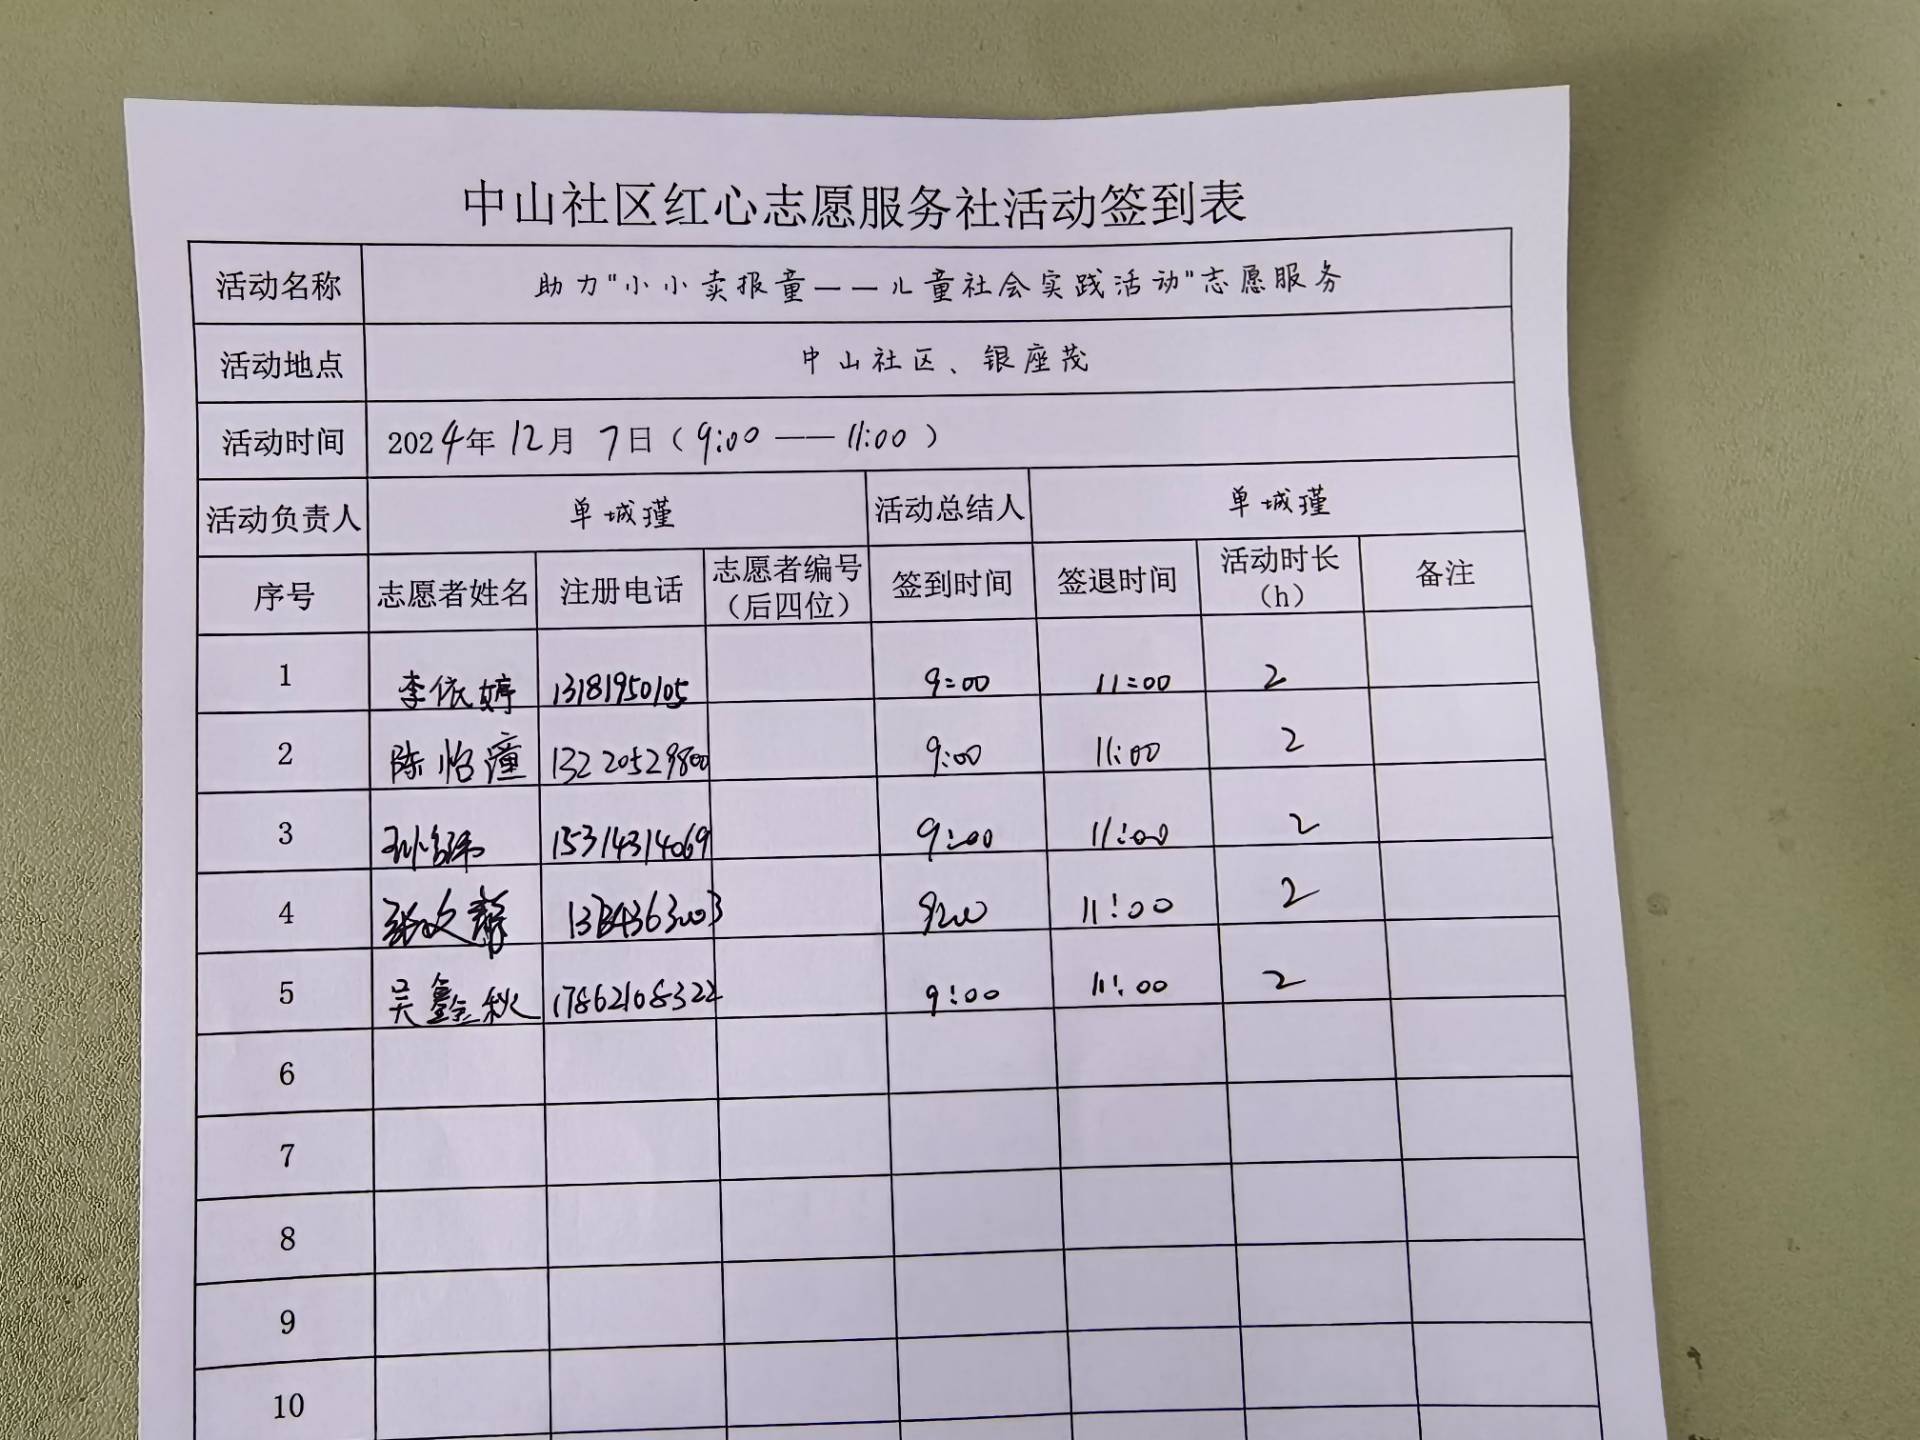 中山社区红心志愿服务社活动签到表
活动名称 助力"小小卖报童——儿童社会实践活动"志愿服务
活动地点 中山社区、银座茂
活动时间 2024年12月7日（9:00——11:00）
活动负责人 单城瑾 活动总结人 单城瑾
序号 志愿者姓名 注册电话 志愿者编号（后四位） 签到时间 签退时间 活动时长（h） 备注
1 李依婷 13181950105 9:00 11:00 2
2 陈怡潼 13220529800 9:00 11:00 2
3 15314314069 9:00 11:00 2
4 9:00 11:00 2
5 吴鑫秋 17862108322 9:00 11:00 2
6
7
8
9
10